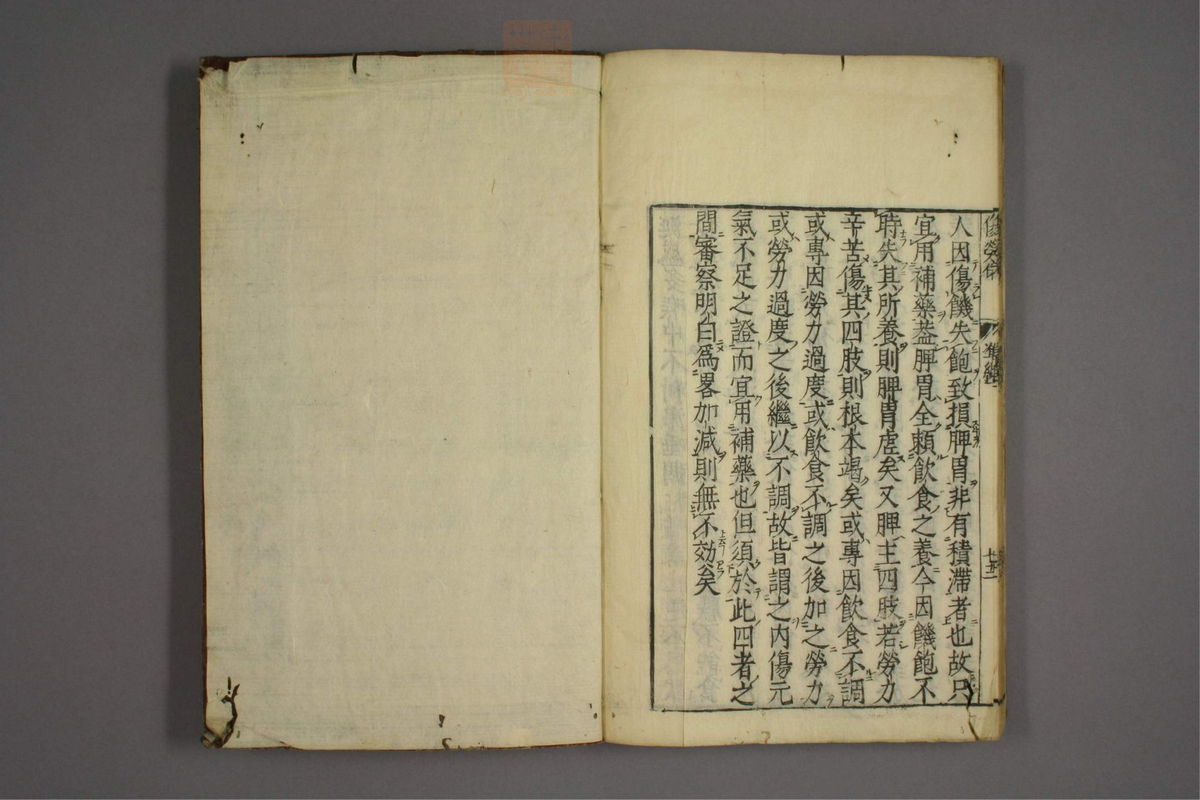 人因傷饑失飽致損脾胃非有積滯者也故只
宜用補藥盖脾胃全頼飲食之養今因饑飽不
時失其所養則脾胃虚矣又脾主四肢若勞力
辛苦傷其四肢則根本竭矣或專因飲食不調
或專因勞力過度或飲食不調之後加之勞力
或勞力過度之後繼以不調故皆謂之內傷元
氣不足之證而宜用補藥也但須於此四者之
間審察明白爲畧加減則無不効矣